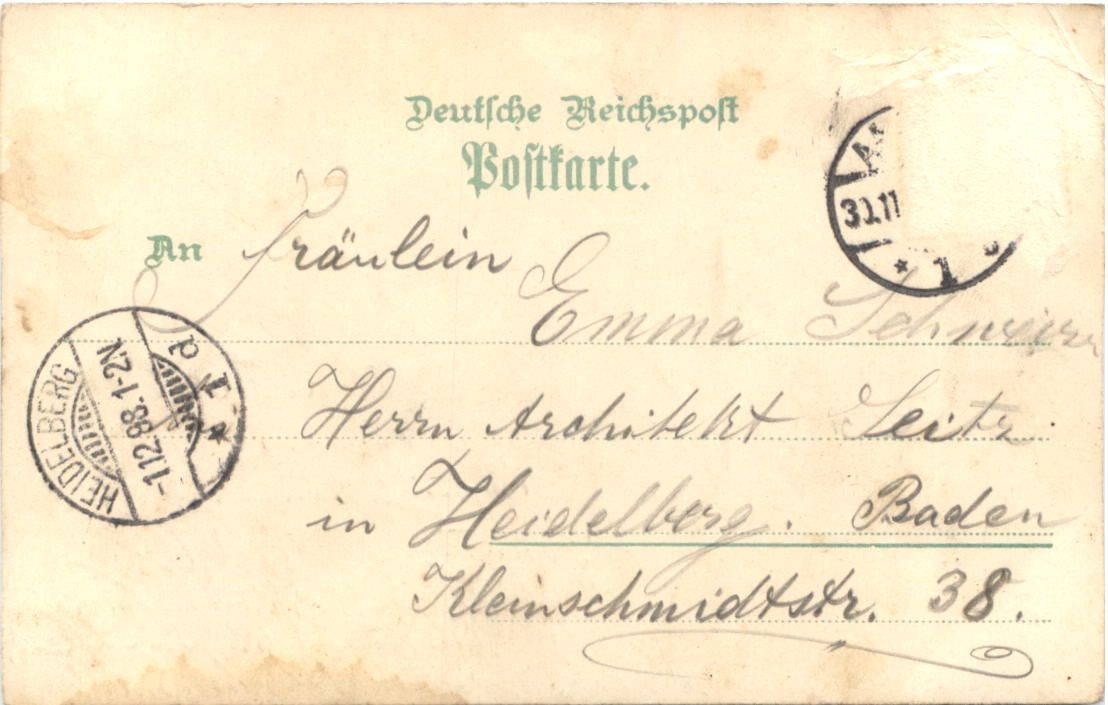 Deutsche Reichspost
Postkarte.
An Fräulein
Emma
Herrn Architekt Seitz
in Heidelberg. Baden
Kleinschmidtstr. 38.
30.11
1
HEIDELBERG
-1.12.98.1-2N
1 d